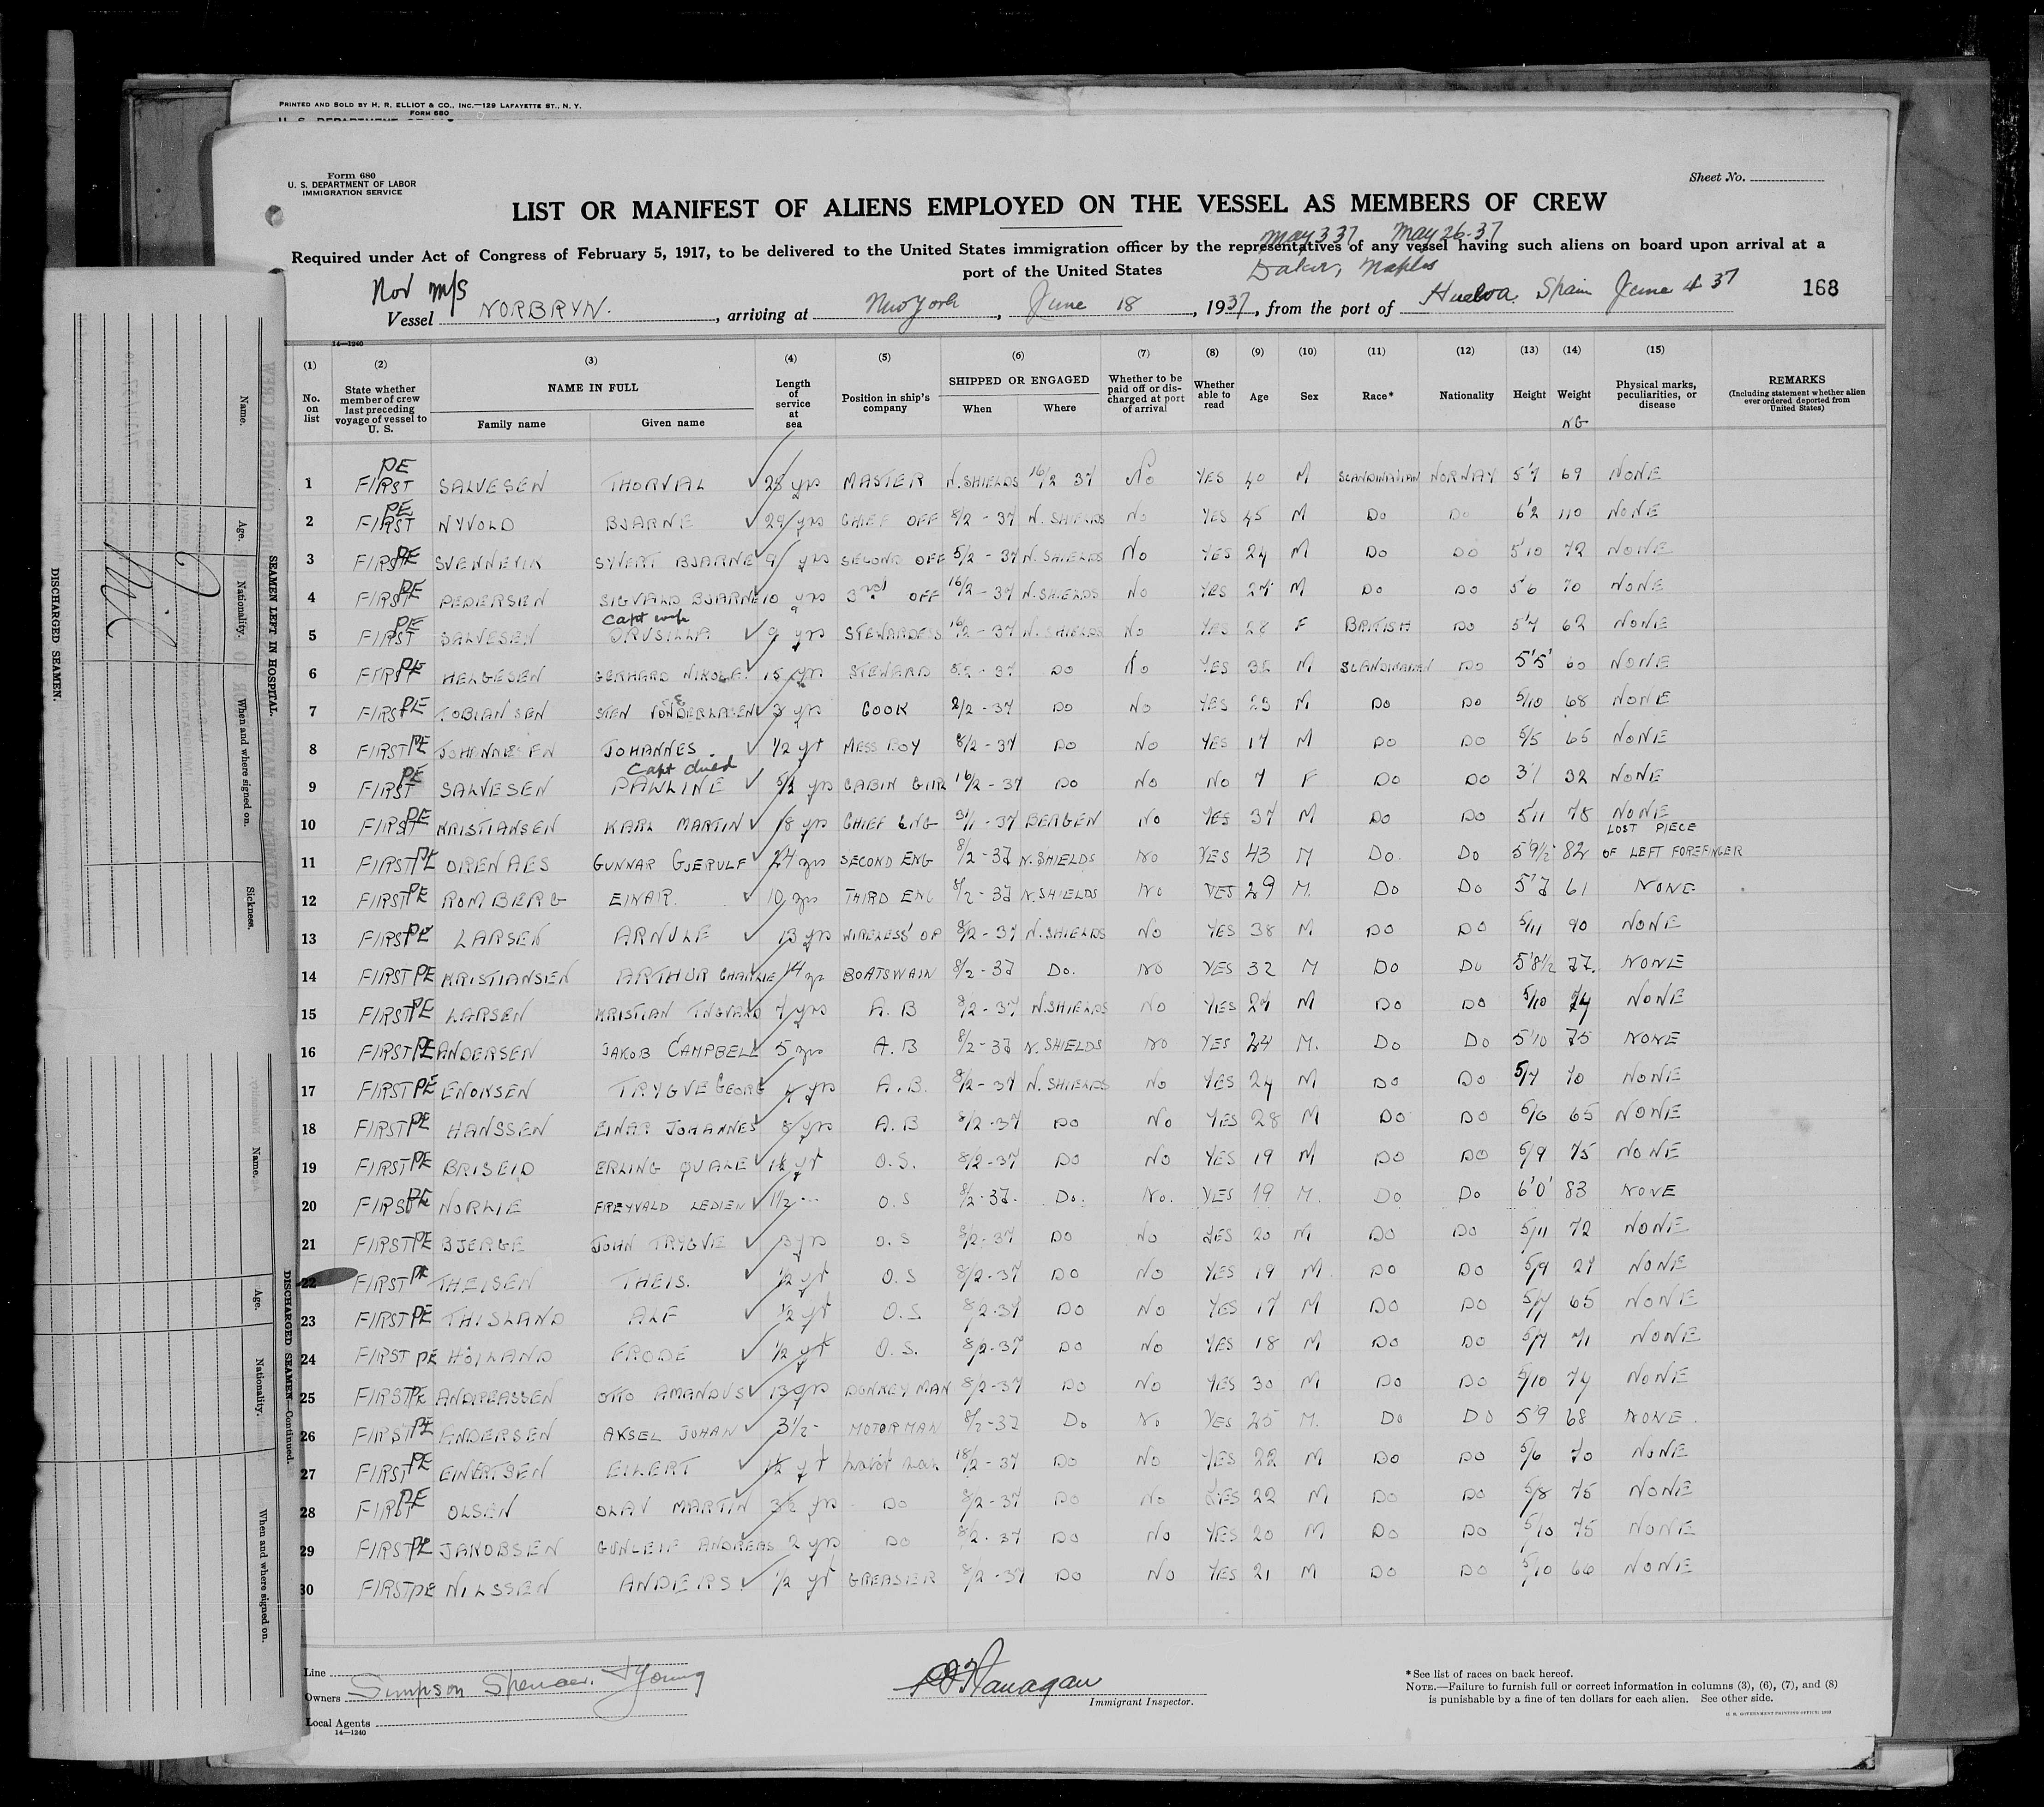 PRINTED AND SOLD BY H. R. ELLIOT & CO., INC.—129 LAFAYETTE ST., N. Y.
FORM 680
Form 680
U. S. DEPARTMENT OF LABOR
IMMIGRATION SERVICE
Sheet No.
LIST OR MANIFEST OF ALIENS EMPLOYED ON THE VESSEL AS MEMBERS OF CREW
May 3 37 May 26-37
Required under Act of Congress of February 5, 1917, to be delivered to the United States immigration officer by the representatives of any vessel having such aliens on board upon arrival at a
port of the United States
Dakar, Naples
Nor M/S
Vessel NORBRYN. , arriving at New York , June 18 , 1937, from the port of Huelva, Spain June 4 37
168
14—1240
(1) (2) (3) (4) (5) (6) (7) (8) (9) (10) (11) (12) (13) (14) (15)
No. on list
State whether member of crew last preceding voyage of vessel to U. S.
NAME IN FULL
Family name Given name
Length of service at sea
Position in ship's company
SHIPPED OR ENGAGED
When Where
Whether to be paid off or discharged at port of arrival
Whether able to read
Age
Sex
Race*
Nationality
Height
Weight
KG
Physical marks, peculiarities, or disease
REMARKS
(Including statement whether alien ever ordered deported from United States)
1 FIRST PE SALVESEN THORVAL 28 yrs MASTER N. SHIELDS 16/2 37 No YES 40 M SCANDINAVIAN NORWAY 5'7 69 NONE
2 FIRST PE NYVOLD BJARNE 29 yrs CHIEF OFF 8/2-37 N. SHIELDS No YES 45 M DO DO 6'2 110 NONE
3 FIRST PE SVENNEVIK SYVERT BJARNE 9 yrs SECOND OFF 5/2-37 N. SHIELDS No YES 24 M DO DO 5'10 72 NONE
4 FIRST PE PEDERSEN SIGVALD BJARNE 10 yrs 3rd OFF 16/2-37 N. SHIELDS No YES 27 M DO DO 5'6 70 NONE
Capt wife
5 FIRST PE SALVESEN DRUSILLA 9 yrs STEWARDESS 16/2-37 N. SHIELDS No YES 28 F BRITISH DO 5'7 62 NONE
6 FIRST PE HELGESEN GERHARD NIKOLAI 15 yrs STEWARD 8/2-37 DO No YES 32 M SCANDINAVIAN DO 5'5' 60 NONE
7 FIRST PE TOBIANSEN STEN 3 yrs COOK 2/2-37 DO No YES 23 M DO DO 5/10 68 NONE
8 FIRST PE JOHANNESEN JOHANNES. 1/2 yr MESS BOY 8/2-37 DO No YES 17 M DO DO 5/5 65 NONE
Capt child
9 FIRST PE SALVESEN PAWLINE 5/2 yrs CABIN GIRL 16/2-37 DO No No 7 F DO DO 3'1 32 NONE
10 FIRST PE KRISTIANSEN KARL MARTIN 18 yrs CHIEF ENG 31/1-37 BERGEN No YES 37 M DO DO 5'11 78 NONE
LOST PIECE
11 FIRST PE ORENAES GUNNAR GJERULF 24 yrs SECOND ENG 8/2-37 N. SHIELDS No YES 43 M DO. DO 5'9 1/2 82 OF LEFT FOREFINGER
12 FIRST PE ROMBERG EINAR. 10 yrs THIRD ENG 8/2-37 N. SHIELDS No YES 29 M. DO DO 5'7 61 NONE
13 FIRST PE LARSEN ARNULF 13 yrs WIRELESS OP 8/2-37 N. SHIELDS No YES 38 M DO DO 5/11 90 NONE
14 FIRST PE KRISTIANSEN ARTHUR CHARLIE 14 yr BOATSWAIN 8/2-37 DO. No YES 32 M DO DO 5'8 1/2 77. NONE
15 FIRST PE LARSEN KRISTIAN INGVALD 7 yrs A. B 8/2-37 N. SHIELDS No YES 27 M DO DO 5/10 74 NONE
16 FIRST PE ANDERSEN JAKOB CAMPBELL 5 yrs A. B 8/2-37 N. SHIELDS No YES 24 M. DO DO 5'10 75 NONE
17 FIRST PE ENOKSEN TRYGVE GEORG 4 yrs A. B. 8/2-37 N. SHIELDS No YES 24 M DO DO 5/7 70 NONE
18 FIRST PE HANSSEN EINAR JOHANNES 8 yrs A. B 8/2-37 DO No YES 28 M DO DO 5/6 65 NONE
19 FIRST PE BRISEID ERLING QVALE 1½ yr O. S. 8/2-37 DO No YES 19 M DO DO 5/9 75 NONE
20 FIRST PE NORLIE FREYVALD LEDIEN 1½ O. S 8/2-37. DO. No. YES 19 M. DO DO 6'0' 83 NONE
21 FIRST PE BJERGE JOHN TRYGVE 3 yrs O. S 8/2-37 DO No YES 20 M DO DO 5/11 72 NONE
22 FIRST PE THEISEN THEIS. 1/2 yr O. S 8/2-37 DO No YES 19 M DO DO 5/9 27 NONE
23 FIRST PE THISLAND ALF 1/2 yr O. S. 8/2-37 DO No YES 17 M DO DO 5/7 65 NONE
24 FIRST PE HÖILAND FRODE 1/2 yr O. S. 8/2-37 DO No YES 18 M DO DO 5/7 71 NONE
25 FIRST PE ANDREASSEN OTTO AMANDUS 13 yrs DONKEY MAN 8/2-37 DO No YES 30 M DO DO 5/10 74 NONE
26 FIRST PE ANDERSEN AKSEL JOHAN 3½ MOTORMAN 8/2-37 DO No YES 25 M. DO DO 5'9 68 NONE.
27 FIRST PE EINERTSEN EILERT 1½ yr 18/2-37 DO No YES 22 M DO DO 5/6 70 NONE
28 FIRST PE OLSEN OLAV MARTIN 3½ yrs DO 8/2-37 DO No YES 22 M DO DO 5/8 75 NONE
29 FIRST PE JAKOBSEN GUNLEIF ANDREAS 2 yrs DO 8/2-37 DO No YES 20 M DO DO 5/10 75 NONE
30 FIRST PE NILSSEN ANDERS. 1/2 yr GREASER 8/2-37 DO No YES 21 M DO DO 5/10 66 NONE
Line
Owners Simpson Spence & Young
Local Agents
14—1240
Flanagan
Immigrant Inspector.
* See list of races on back hereof.
NOTE.—Failure to furnish full or correct information in columns (3), (6), (7), and (8)
is punishable by a fine of ten dollars for each alien. See other side.
U. S. GOVERNMENT PRINTING OFFICE: 1932
SEAMEN LEFT IN HOSPITAL.
Name. Age. Nationality. When and where signed on. Sickness.
Nil
DISCHARGED SEAMEN.
DISCHARGED SEAMEN—Continued.
Name. Age. Nationality. When and where signed on.